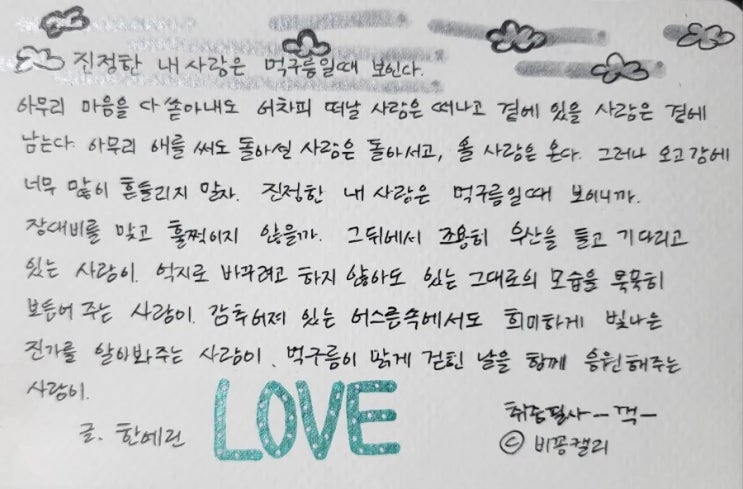 진정한 내 사람은 먹구름일때 보인다.
아무리 마음을 다 쏟아내도 어차피 떠날 사람은 떠나고 곁에 있을 사람은 곁에
남는다. 아무리 애를 써도 돌아설 사람은 돌아서고, 올 사람은 온다. 그러나 오고 감에
너무 많이 흔들리지 말자. 진정한 내 사람은 먹구름일때 보이니까.
장대비를 맞고 훌쩍이지 않을까. 그뒤에서 조용히 우산을 들고 기다리고
있는 사람이. 억지로 바꾸려고 하지 않아도 있는 그대로의 모습을 묵묵히
보듬어 주는 사람이. 감추어져 있는 어스름속에서도 희미하게 빛나는
진가를 알아봐주는 사람이. 먹구름이 맑게 걷힌 날을 함께 응원해주는
사람이.
글. 한예린 LOVE
취중필사 -꺽-
© 비꽁캘리